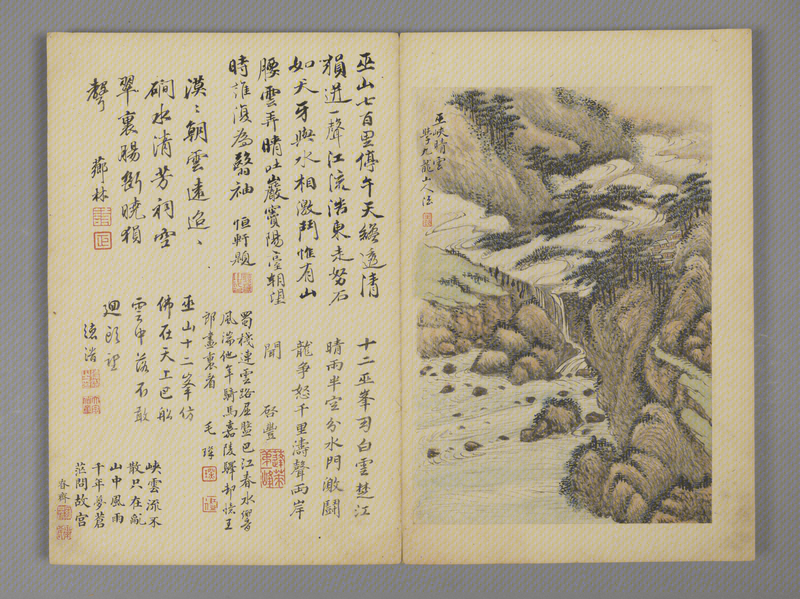 巫峽晴雲
學九龍山人法
巫山七百里停午天纔透清
猿迸一聲江流浩東走努石
如犬牙與水相激鬥惟有山
腰雲弄晴吐巖竇陽臺朝望
時誰復為翳袖 恒軒題
漠〻朝雲遠迢〻
磵水清芳祠空
翠裏腸斷曉猿
聲 薌林
十二巫峯司白雲楚江
晴雨半空分水門激鬪
龍爭怒千里濤聲兩岸
聞 啓豐
蜀棧連雲路屈盤巴江春水
風湍他年騎馬嘉陵驛却憶王
郎畫裏看 毛琛
巫山十二峯仿
佛在天上巴船
雲中落不敢
迴頭望
德潛
峽雲流不
散只在亂
山中風雨
千年夢蒼
茫問故宮